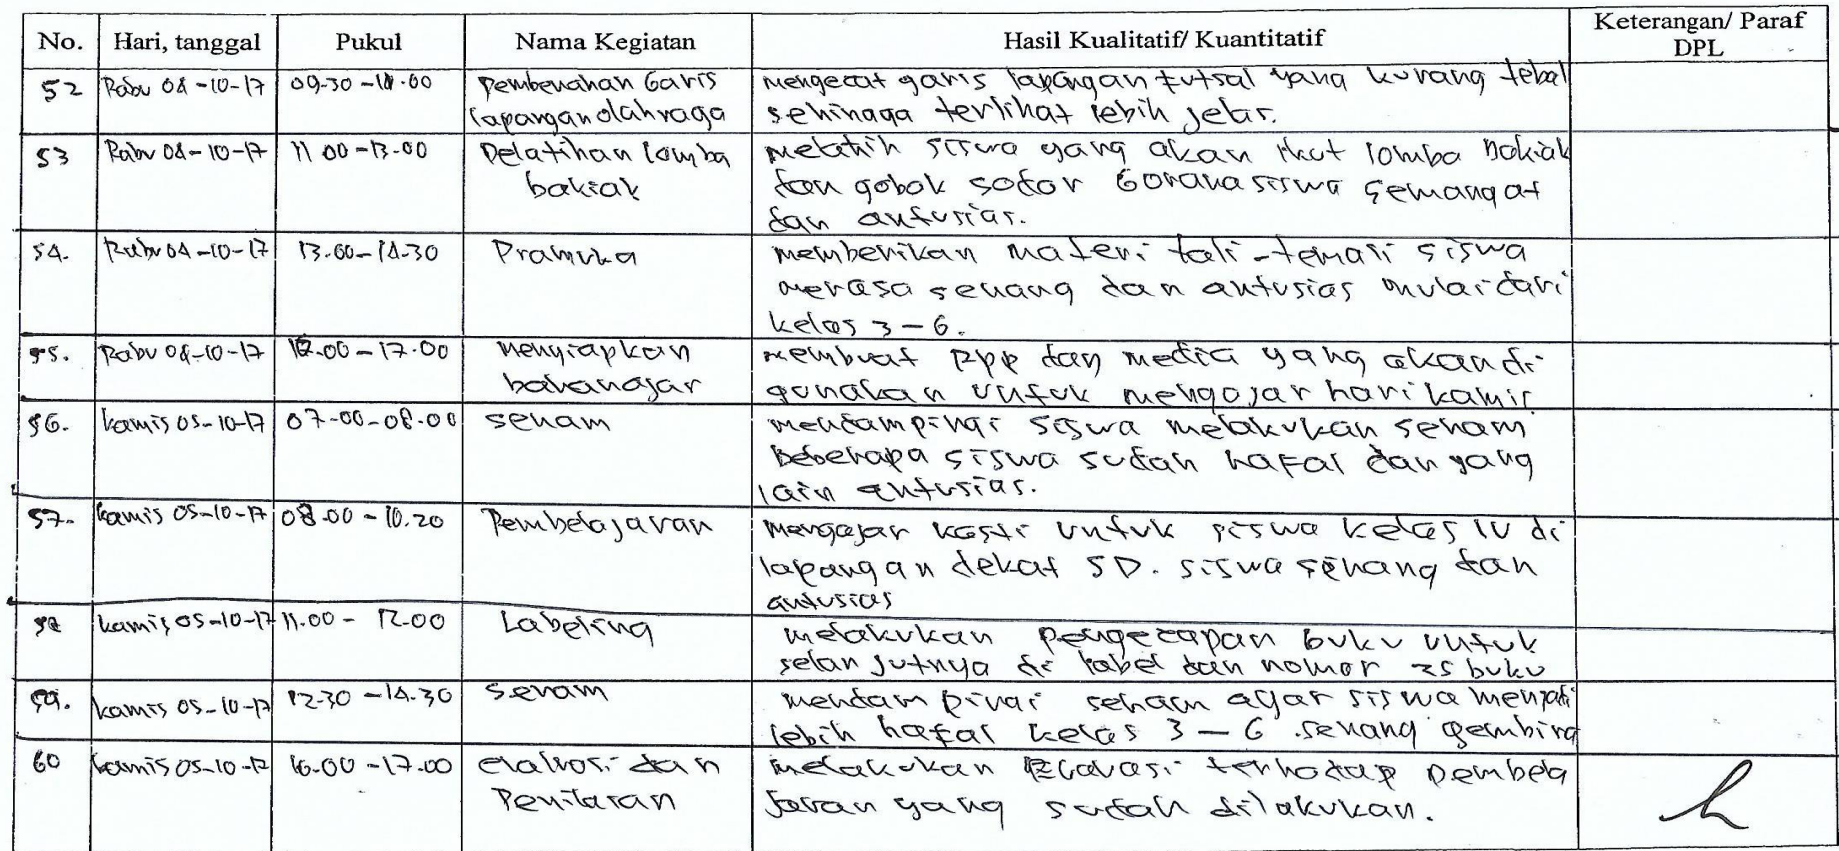 No. Hari, tanggal Pukul Nama Kegiatan Hasil Kualitatif/ Kuantitatif Keterangan/ Paraf DPL
52 Rabu 04-10-17 09.30-11.00 Pembenahan Garis lapangan olahraga
mengecat garis lapangan futsal yang kurang tebal
sehingga terlihat lebih jelas.
53 Rabu 04-10-17 11.00-13.00 Pelatihan lomba bakiak
melatih siswa yang akan ikut lomba bakiak
dan gobak sodor 60 siswa semangat
dan antusias.
54. Rabu 04-10-17 13.00-14.30 Pramuka
memberikan materi tali-temali siswa
merasa senang dan antusias mulai dari
kelas 3-6.
55. Rabu 04-10-17 16.00-17.00 Menyiapkan bahan ajar
membuat RPP dan media yang akan di
gunakan untuk mengajar hari kamis
56. kamis 05-10-17 07.00-08.00 senam
mendampingi siswa melakukan senam
beberapa siswa sudah hafal dan yang
lain antusias.
57. kamis 05-10-17 08.00-10.20 Pembelajaran
mengajar kasti untuk siswa kelas IV di
lapangan dekat SD. siswa senang dan
antusias
58 kamis 05-10-17 11.00 - 12.00 Labeling
melakukan pengecapan buku untuk
selanjutnya di label dan nomor 25 buku
59. kamis 05-10-17 12.30-14.30 senam
mendampingi senam agar siswa menjadi
lebih hafal kelas 3-6 senang gembira
60 kamis 05-10-17 16.00-17.00 dan Penilaian
melakukan terhadap pembela
jaran yang sudah dilakukan.